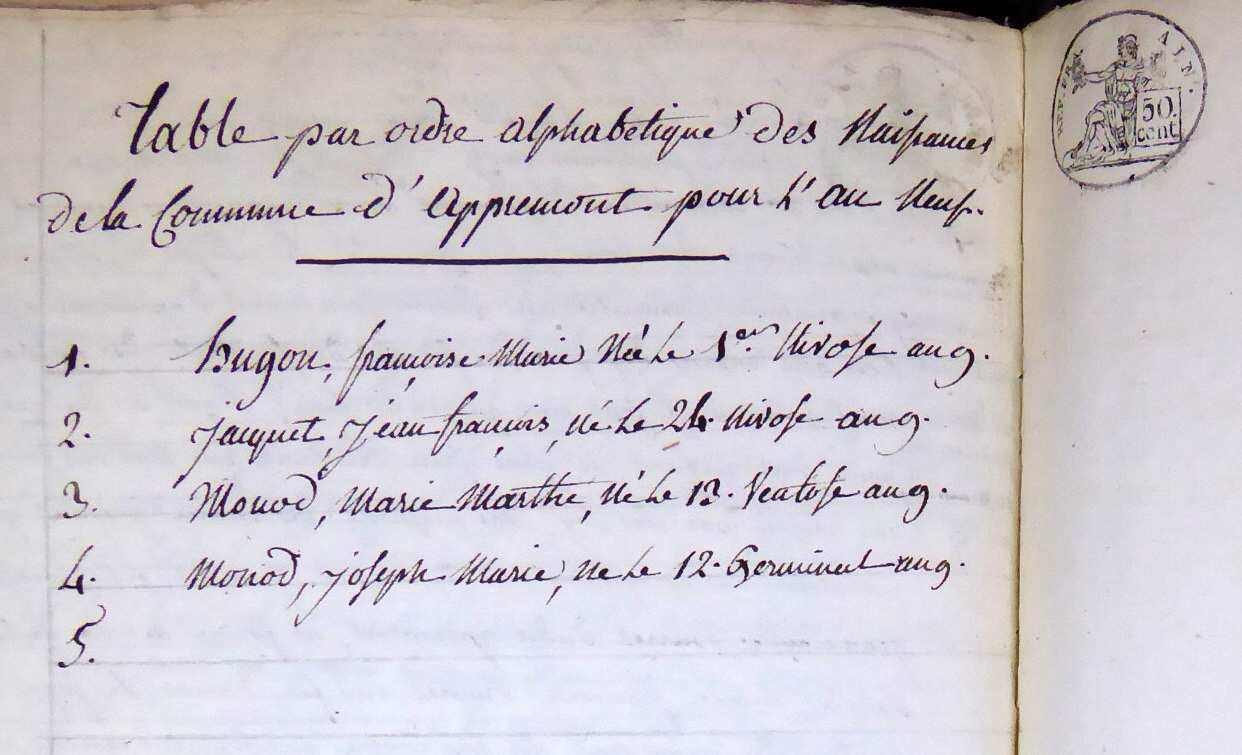 Table par ordre alphabetique des Naissances
de la Commune d'apremont pour L'an Neuf.
1. hugon, françoise Marie Née Le 1er. Nivose an 9.
2. jacquet, jean françois, né Le 24. Nivose an 9.
3. Monod, Marie Marthe, Né Le 13. Ventose an 9.
4. Monod, joseph Marie, né Le 12. Germinal an 9.
5.
AIN.
50.
cent